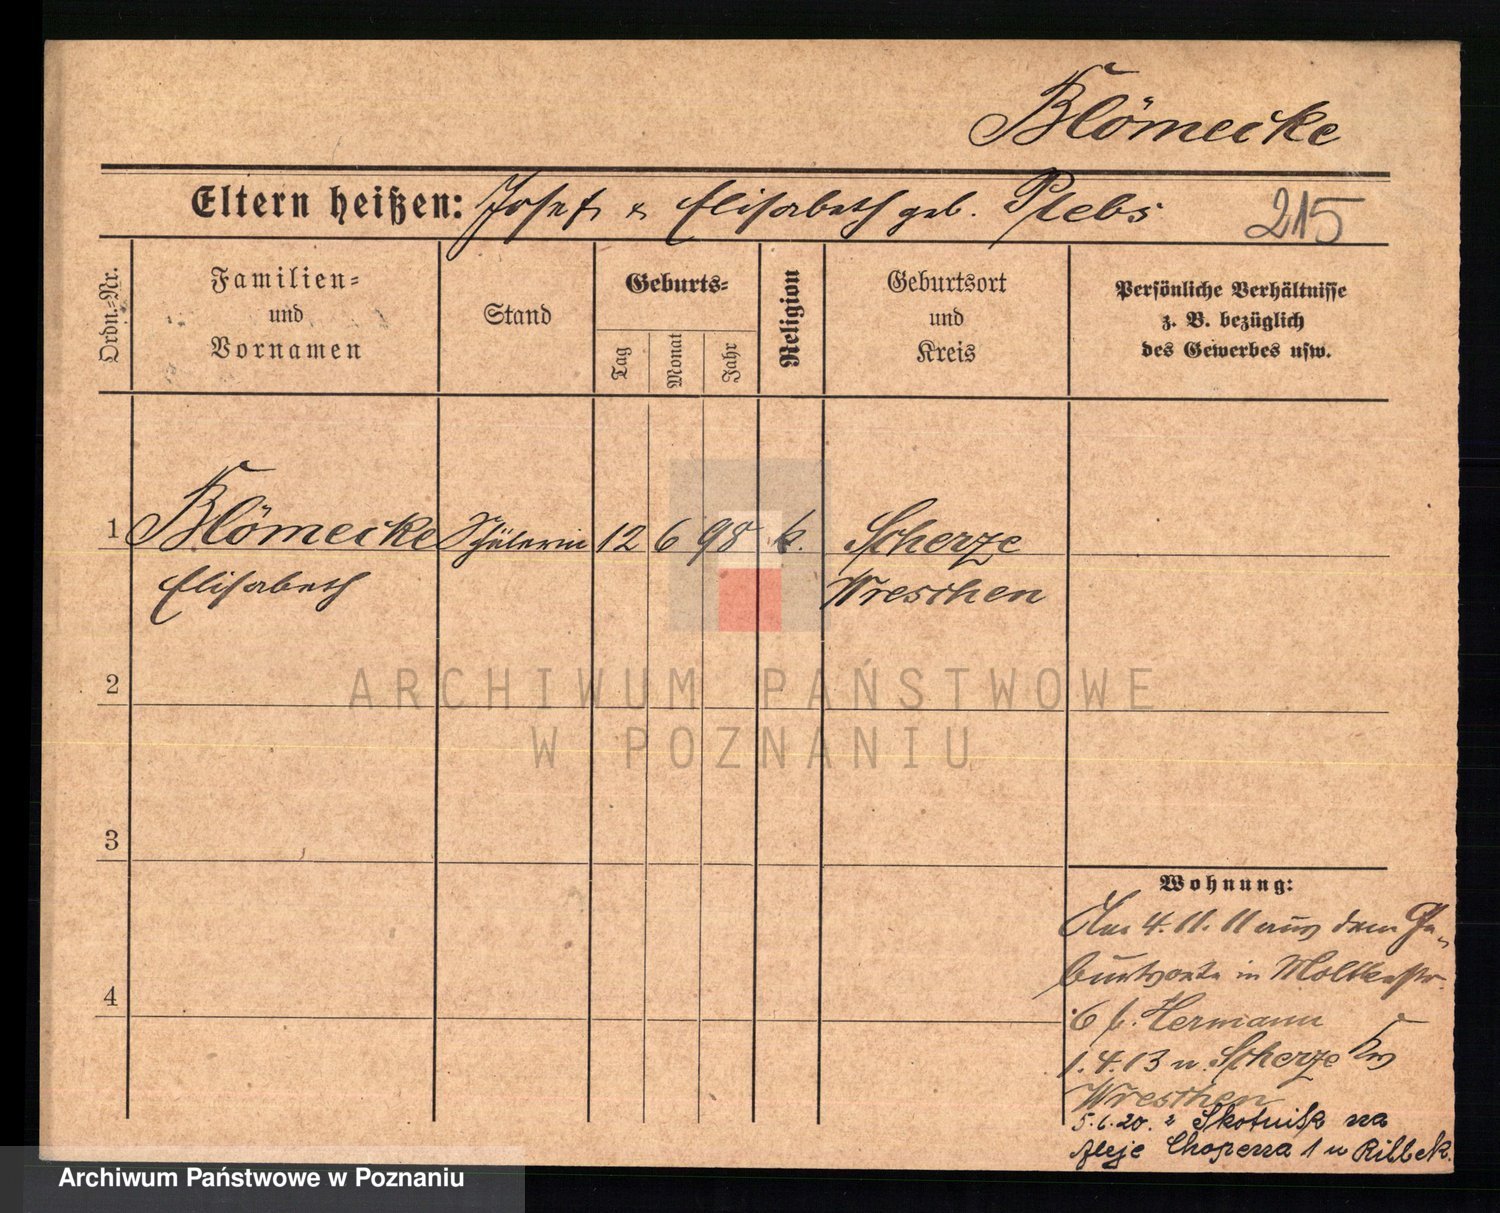 Blömecke
Eltern heißen: Josef & Elisabeth geb. Plebs 215
Ordn.-Nr.
Familien-
und
Vornamen
Stand
Geburts-
Tag
Monat
Jahr
Religion
Geburtsort
und
Kreis
Persönliche Verhältnisse
z. B. bezüglich
des Gewerbes usw.
1 Blömecke Schülerin 12 6 98 k. Scherze
Elisabeth Wreschen
2
3
4
Wohnung:
Am 4. 11. 11 aus dem Ge-
burtsorte in Moltkestr.
6 b. Hermann
1. 4. 13 n. Scherze Krs
Wreschen
5. 6. 20. z Skotnik na
Aleje Chopena 1 u Ribbek.
ARCHIWUM PAŃSTWOWE
W POZNANIU
Archiwum Państwowe w Poznaniu